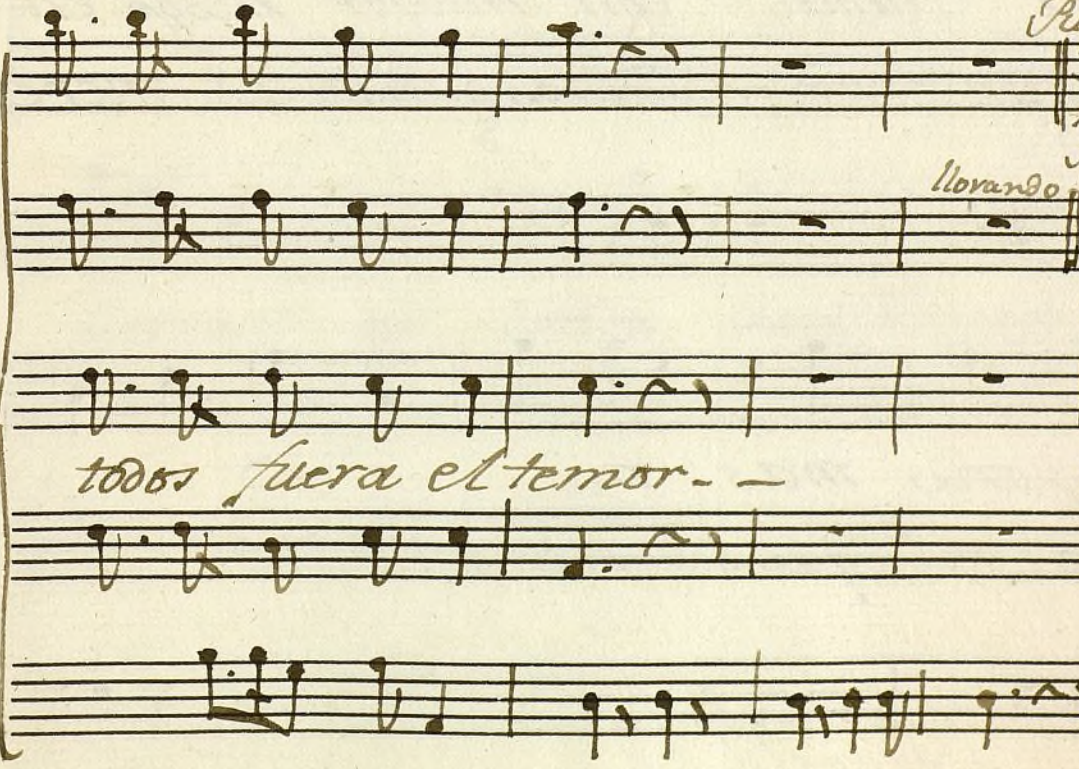 llorando
todos fuera el temor - -